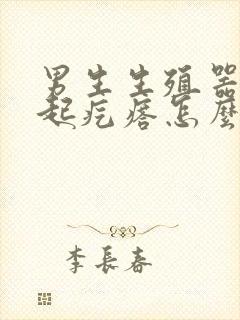 男生生殖器
起疙瘩怎麼
李長春